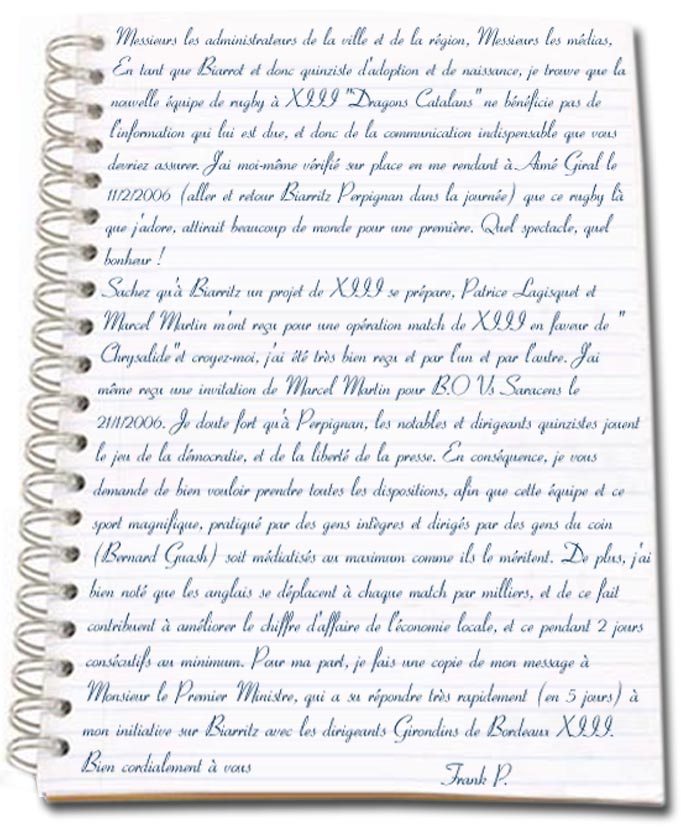 Messieurs les administrateurs de la ville et de la région, Messieurs les médias,
En tant que Biarrot et donc quinziste d'adoption et de naissance, je trouve que la
nouvelle équipe de rugby à XIII "Dragons Catalans" ne bénéficie pas de
l'information qui lui est due, et donc de la communication indispensable que vous
devriez assurer. J'ai moi-même vérifié sur place en me rendant à Aimé Giral le
11/2/2006 (aller et retour Biarritz Perpignan dans la journée) que ce rugby là
que j'adore, attirait beaucoup de monde pour une première. Quel spectacle, quel
bonheur !
Sachez qu'à Biarritz un projet de XIII se prépare, Patrice Lagisquet et
Marcel Martin m'ont reçu pour une opération match de XIII en faveur de "
Chrysalide"et croyez-moi, j'ai été très bien reçu et par l'un et par l'autre. J'ai
même reçu une invitation de Marcel Martin pour B.O Vs Saracens le
21/1/2006. Je doute fort qu'à Perpignan, les notables et dirigeants quinzistes jouent
le jeu de la démocratie, et de la liberté de la presse. En conséquence, je vous
demande de bien vouloir prendre toutes les dispositions, afin que cette équipe et ce
sport magnifique, pratiqué par des gens intègres et dirigés par des gens du coin
(Bernard Guash) soit médiatisés au maximum comme ils le méritent. De plus, j'ai
bien noté que les anglais se déplacent à chaque match par milliers, et de ce fait
contribuent à améliorer le chiffre d'affaire de l'économie locale, et ce pendant 2 jours
consécutifs au minimum. Pour ma part, je fais une copie de mon message à
Monsieur le Premier Ministre, qui a su répondre très rapidement (en 5 jours) à
mon initiative sur Biarritz avec les dirigeants Girondins de Bordeaux XIII.
Bien cordialement à vous
Frank P.